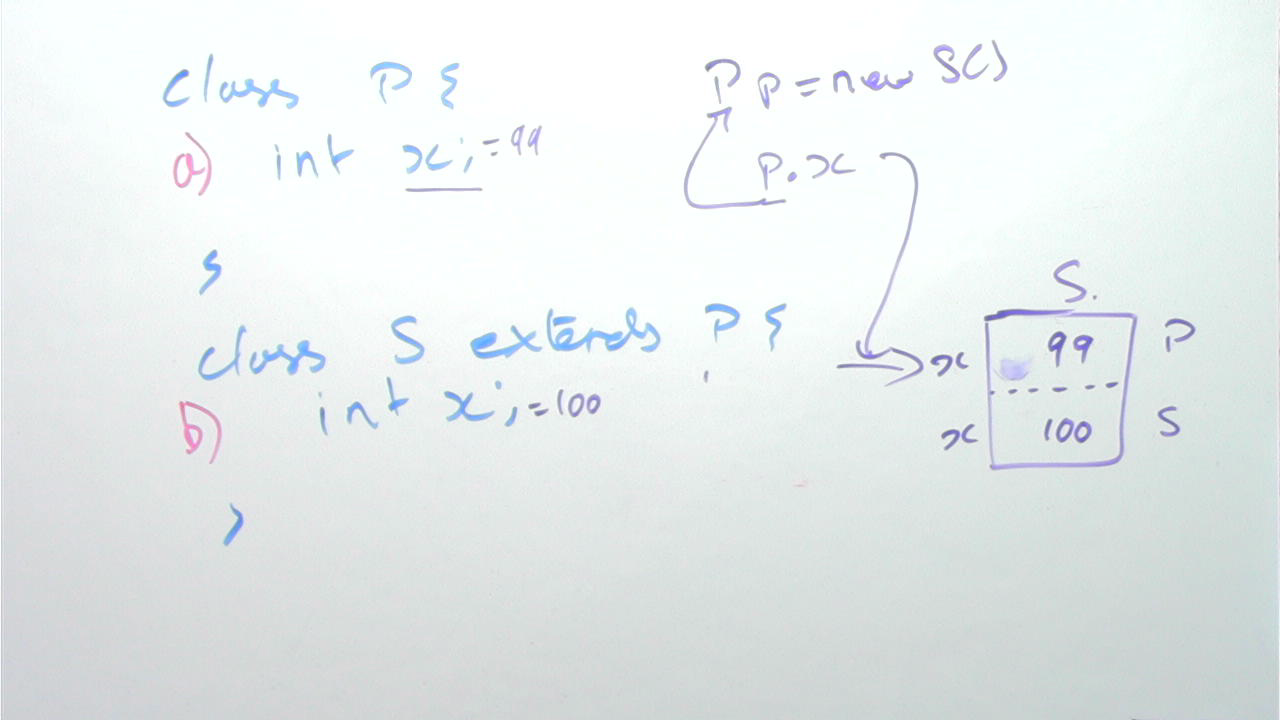 class P {
a) int x; = 99
}
class S extends P {
b) int x; = 100
}
P p = new S()
p.x
S.
x 99 P
x 100 S